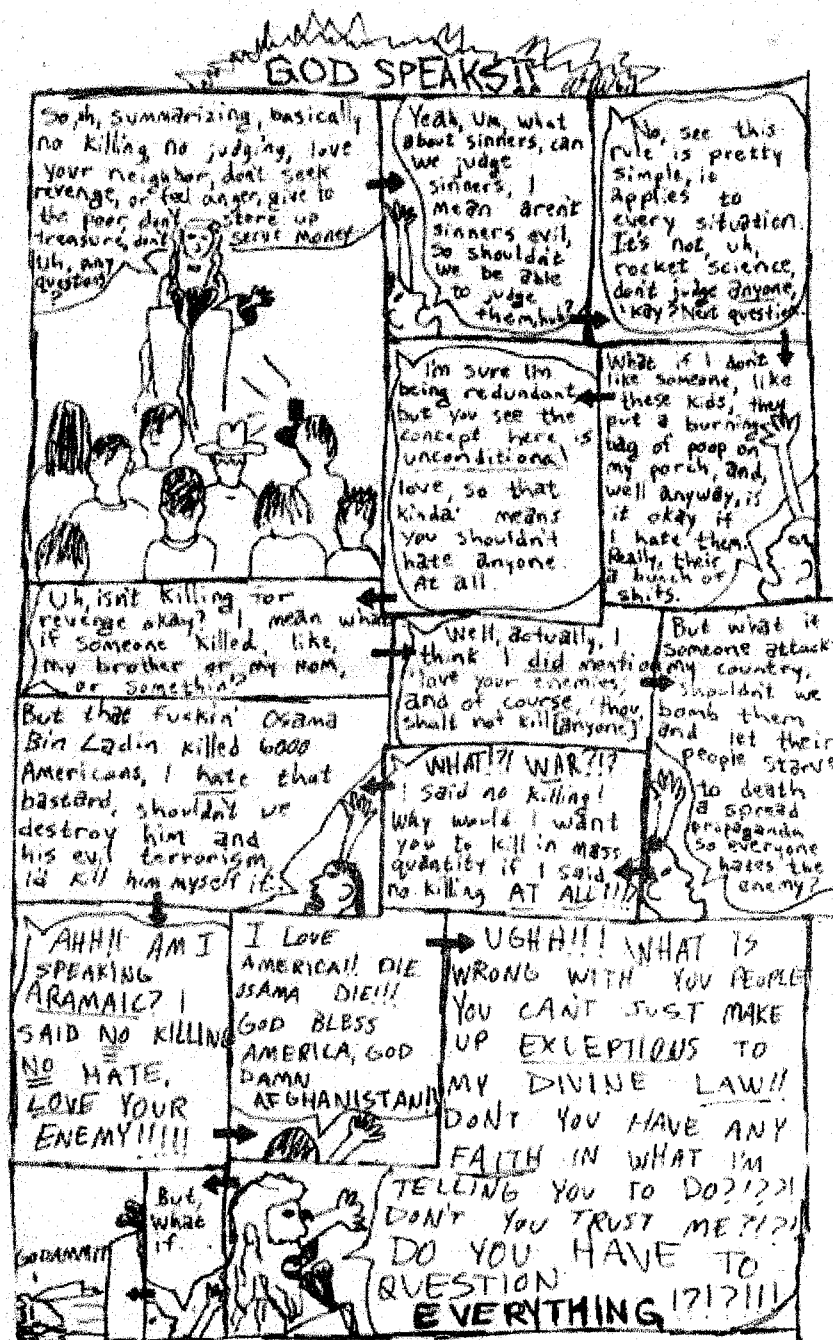 GOD SPEAKS!!
So, uh, summarizing, basically
no killing no judging, love
your neighbor, don't seek
revenge, or feel anger, give to
the poor, don't store up
treasure, don't serve money
Uh, any
questions?
Yeah, Um, what
about sinners, can
we judge
sinners, I
mean aren't
sinners evil,
so shouldn't
we be able
to judge
them, huh?
No, see this
rule is pretty
simple, it
applies to
every situation.
It's not, uh,
rocket science,
don't judge anyone,
'kay? Next question.
What if I don't
like someone, like
these kids, they
put a burning
bag of poop on
my porch, and,
well anyway, is
it okay if
I hate them.
Really, their
a bunch of
shits.
I'm sure I'm
being redundant,
but you see the
concept here is
unconditional
love, so that
kinda' means
you shouldn't
hate anyone.
At all.
Uh, isn't killing for
revenge okay? I mean what
if someone killed, like,
my brother or my mom,
or somethin'?
Well, actually, I
think I did mention
'love your enemies,'
and of course, 'thou
shalt not kill [anyone]
But what if
someone attack
my country,
shouldn't we
bomb them
and let their
people starve
to death
a spread
propaganda
so everyone
hates the
enemy?
WHAT!?! WAR?!?
I said no killing!
Why would I want
you to kill in mass
quantity if I said
no killing AT ALL!!!
But that fuckin' Osama
Bin Ladin killed 6000
Americans, I hate that
bastard, shouldn't we
destroy him and
his evil terrorism,
I'd kill him myself if..
AHH!! AM I
SPEAKING
ARAMAIC? I
SAID NO KILLING
NO HATE,
LOVE YOUR
ENEMY!!!!!
I LOVE
AMERICA!! DIE
OSAMA DIE!!!
GOD BLESS
AMERICA, GOD
DAMN
AFGHANISTAN!!
UGHH!!! WHAT IS
WRONG WITH YOU PEOPLE
YOU CAN'T JUST MAKE
UP EXCEPTIONS TO
MY DIVINE LAW!!
DON'T YOU HAVE ANY
FAITH IN WHAT I'M
TELLING YOU TO DO?!?!?!
DON'T YOU TRUST ME?!?!?!
DO YOU HAVE TO
QUESTION
EVERYTHING !?!?!!!
But,
what
if
GODAMMIT!